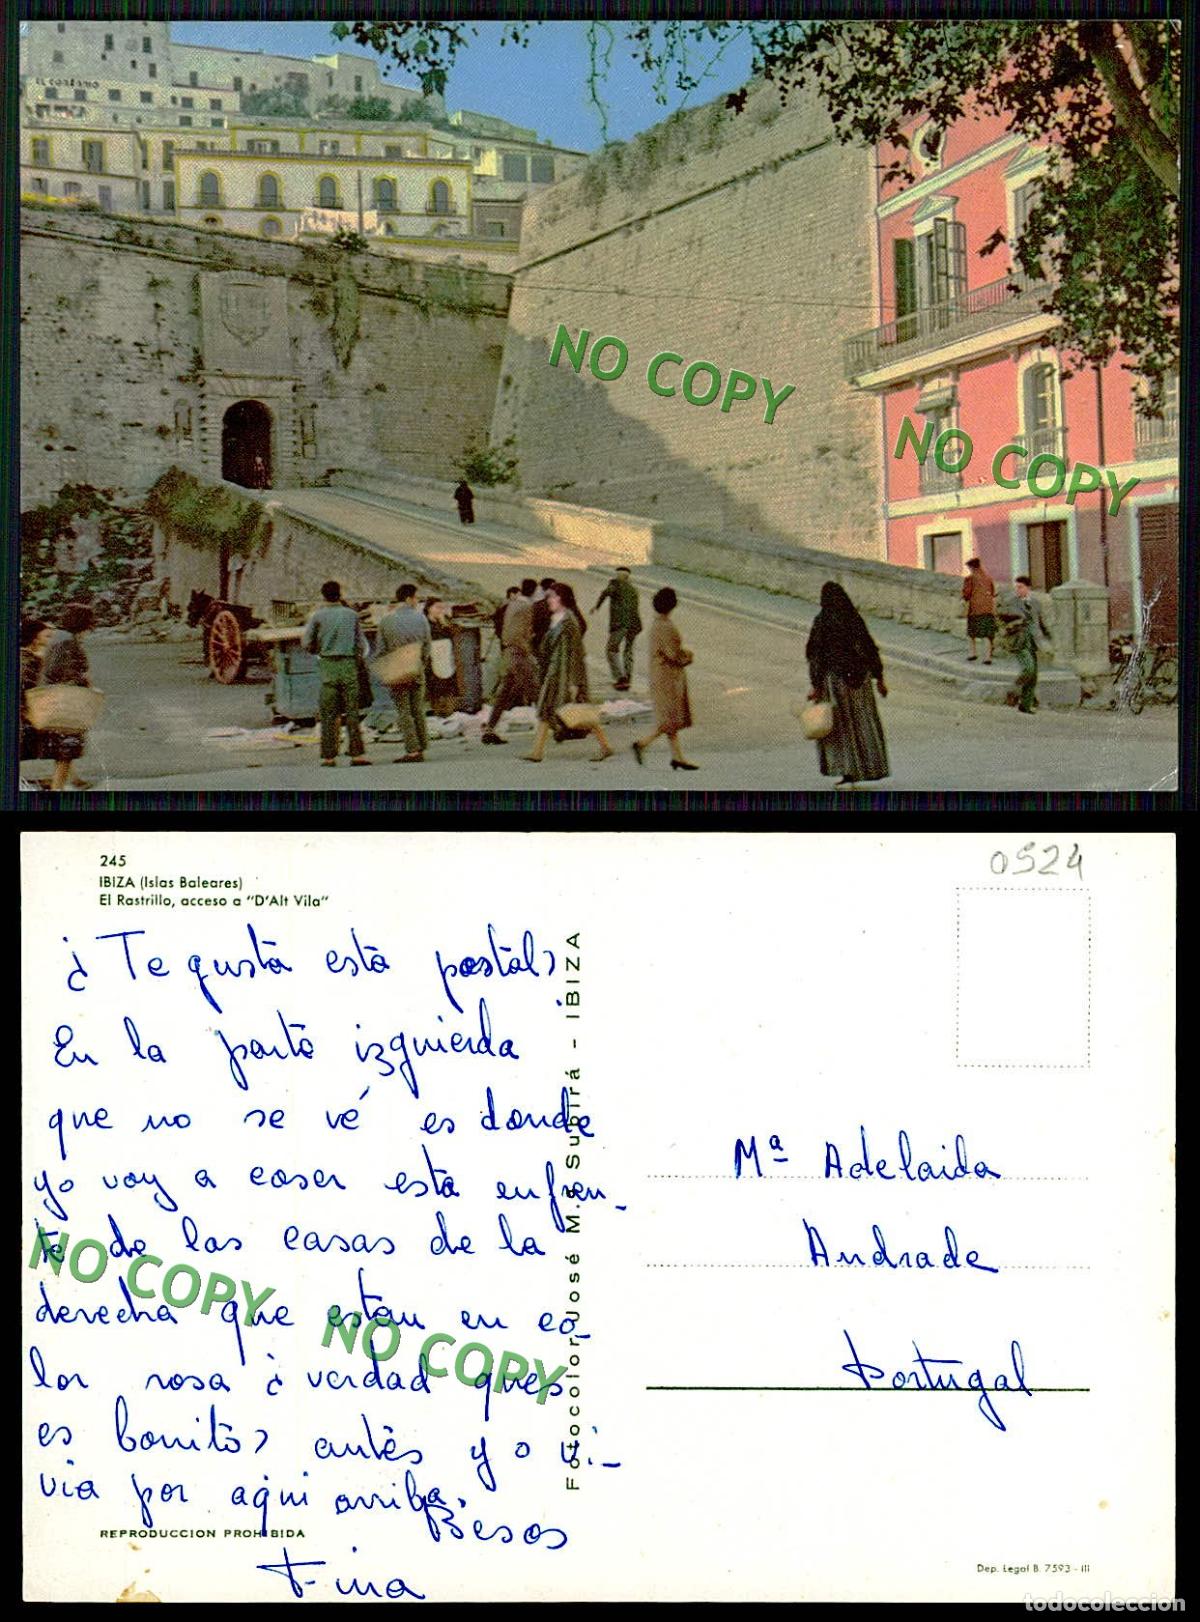 EL CORSARIO
NO COPY
NO COPY
245
IBIZA (Islas Baleares)
El Rastrillo, acceso a "D'Alt Vila"
0524
¿Te gusta esta postal?
En la parte izquierda
que no se vé es donde
yo voy a coser esta enfren-
te de las casas de la
derecha que estan en co-
lor rosa ¿verdad que
es bonito? antes yo vi-
via por aqui arriba.
Besos
Fina
NO COPY
NO COPY
REPRODUCCION PROHIBIDA
Fotocolor José M.ª Subirá - IBIZA
Mª Adelaida
Andrade
Portugal
Dep. Legal B. 7593 - III
todocoleccion